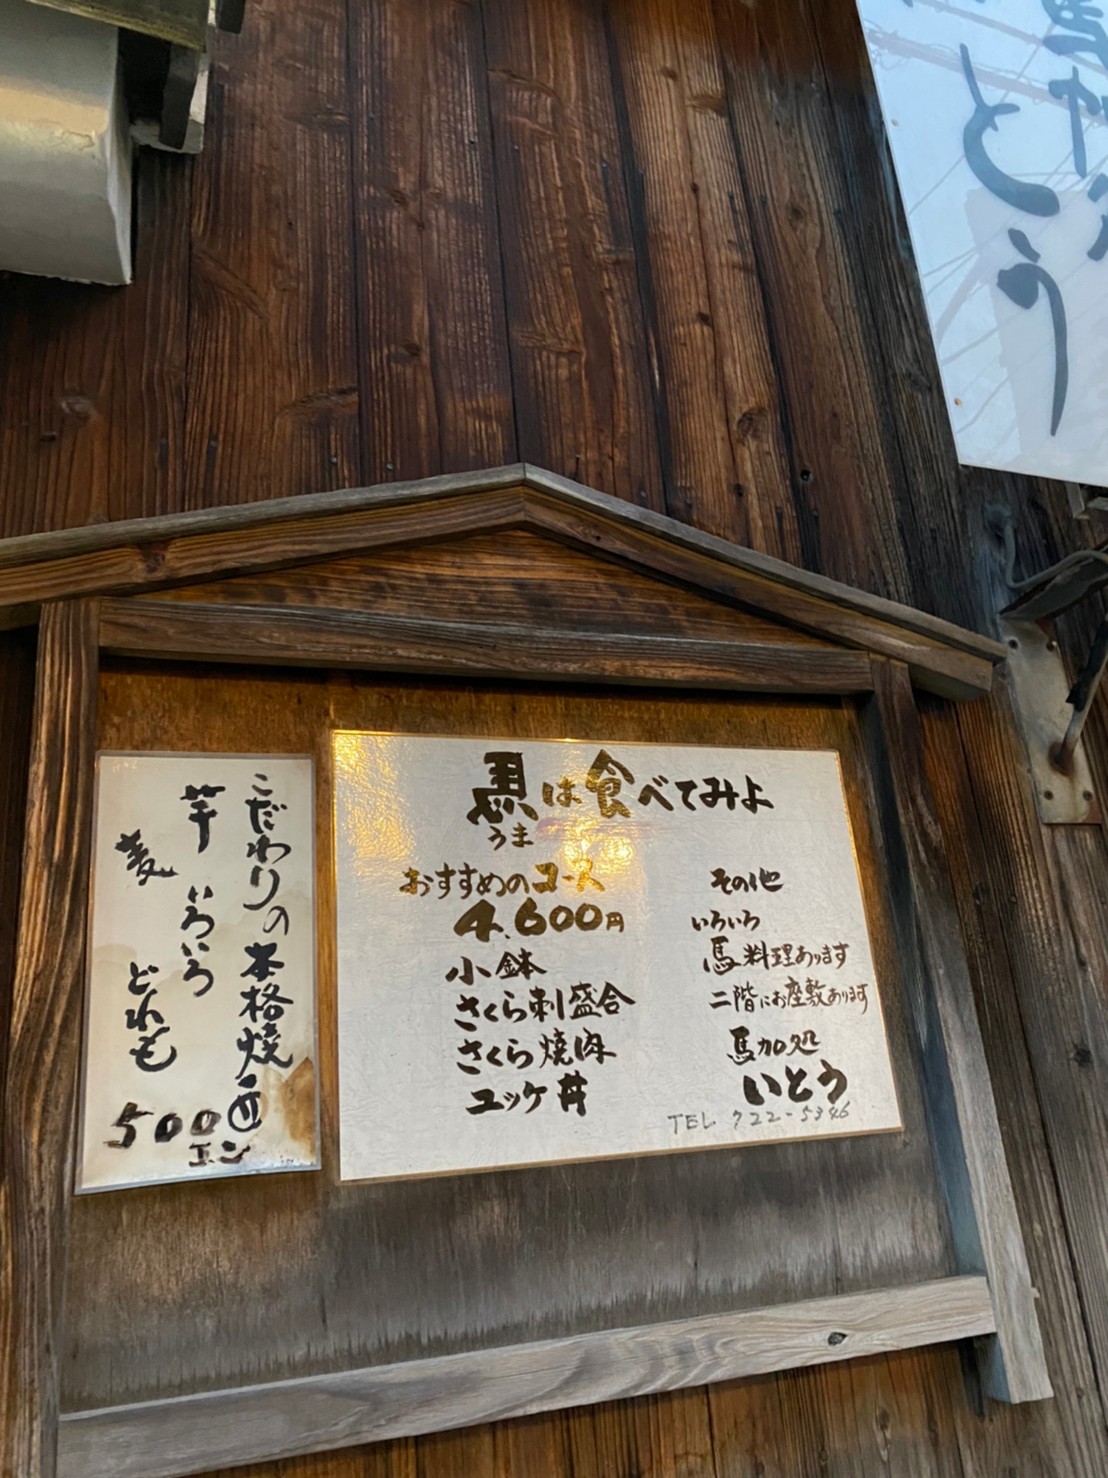 こだわりの本格焼酎
芋 いろいろ
麦 どれも
500エン
馬は食べてみよ
うま
おすすめのコース
4,600円
小鉢
さくら刺盛合
さくら焼肉
ユッケ丼
その他
いろいろ
馬料理あります
二階にお座敷あります
馬加処
いとう
TEL 722-5346
とう